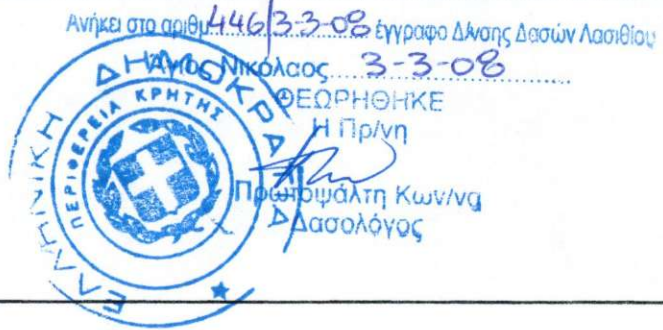 Ανήκει στο αριθμ. 446/3-3-08 έγγραφο Δ/νσης Δασών Λασιθίου
Άγιος Νικόλαος 3-3-08
ΘΕΩΡΗΘΗΚΕ
Η Πρ/νη
Πρωτοψάλτη Κων/να
Δασολόγος
ΕΛΛΗΝΙΚΗ ΔΗΜΟΚΡΑΤΙΑ
ΠΕΡΙΦΕΡΕΙΑ ΚΡΗΤΗΣ